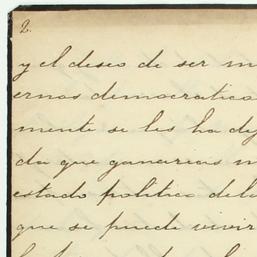 2.
y el deseo de ser m
ernos democratico
mente se les ha dej
da que ganarias m
estado politico del
que se puede vivir